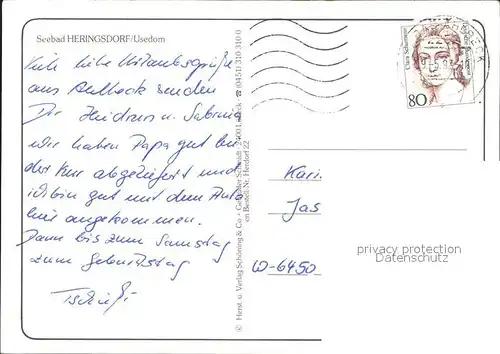 Seebad HERINGSDORF/Usedom
Viele liebe Urlaubsgrüße
aus Ahlbeck senden
Dir Heidrun u. Sabrina
wir haben Papa gut bei
der Kur abgeliefert und
sind gut mit dem Auto
hier angekommen.
Dann bis zum Samstag
zum Geburtstag
Tschüß!
© Herst. u. Verlag Schöning & Co · Gebrüder Schmidt · Lübeck ☎ (0451) 310 310
Bestell-Nr. Herdorf 22
80
Kari.
Jas
W-6450
privacy protection
Datenschutz